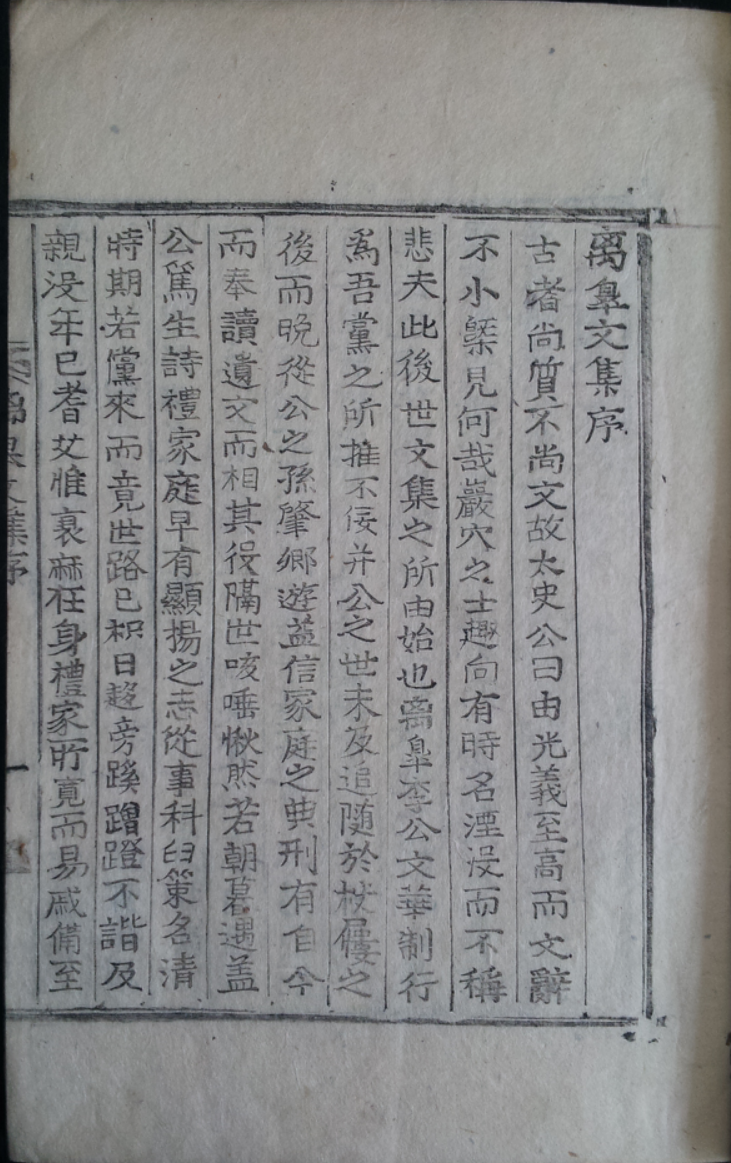 离皐文集序
古者尚質不尚文故太史公曰由光義至高而文辭
不小槩見何哉巖穴之士趣向有時名湮沒而不稱
悲夫此後世文集之所由始也离皐李公文華制行
爲吾黨之所推不佞并公之世未及追隨於杖屨之
後而晩從公之孫肇鄉遊益信家庭之典刑有自今
而奉讀遺文而相其役隔世咳唾愀然若朝暮遇盖
公篤生詩禮家庭早有顯揚之志從事科臼策名清
時期若儻來而竟世路已枳日趍旁蹊蹭蹬不諧及
親没年已耆艾惟衰麻在身禮家所寛而易戚備至
离皐文集序
一